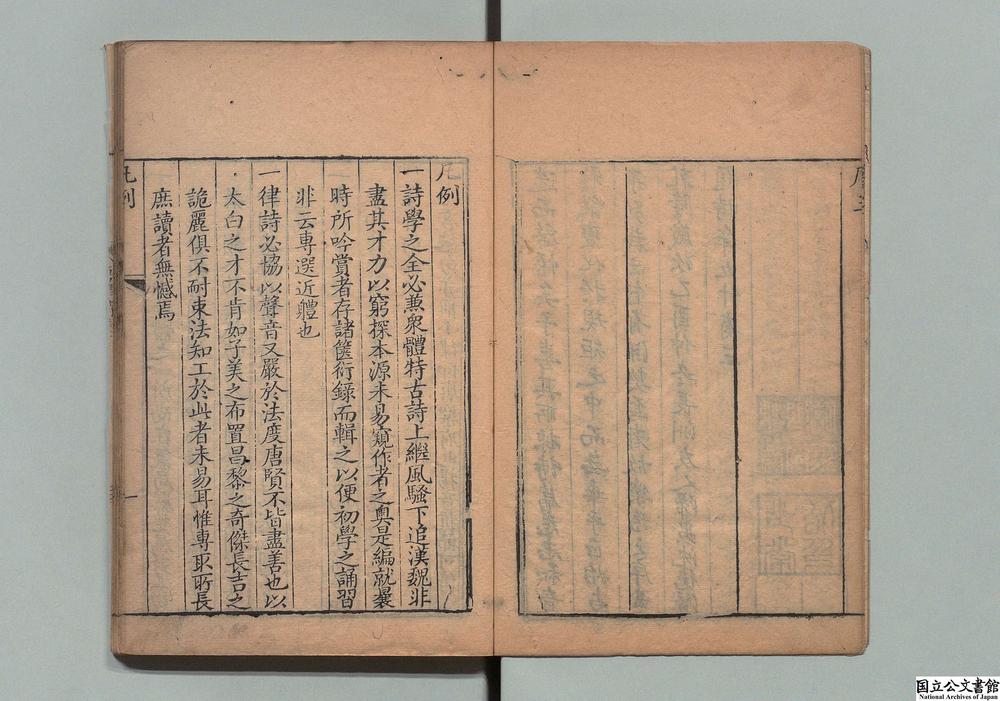 凡例
一詩學之全必兼衆體特古詩上繼風騷下追漢魏非
盡其才力以窮探本源未易窺作者之奧是編就曩
時所吟賞者存諸篋衍錄而輯之以便初學之誦習
非云專選近體也
一律詩必協以聲音又嚴於法度唐賢不皆盡善也以
太白之才不肯如子美之布置昌黎之奇傑長吉之
詭麗俱不耐束法知工於此者未易耳惟專取所長
庶讀者無憾焉
凡例
一
国立公文書館
National Archives of Japan